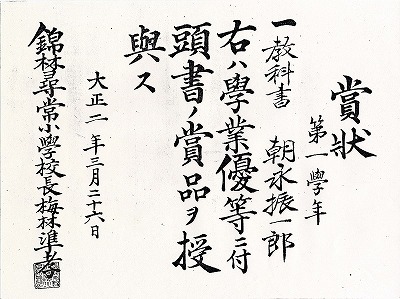 賞狀
第一學年
朝永振一郎
一教科書
右ハ學業優等ニ付
頭書ノ賞品ヲ授
與ス
大正二年三月二十六日
錦林尋常小學校長梅林準孝